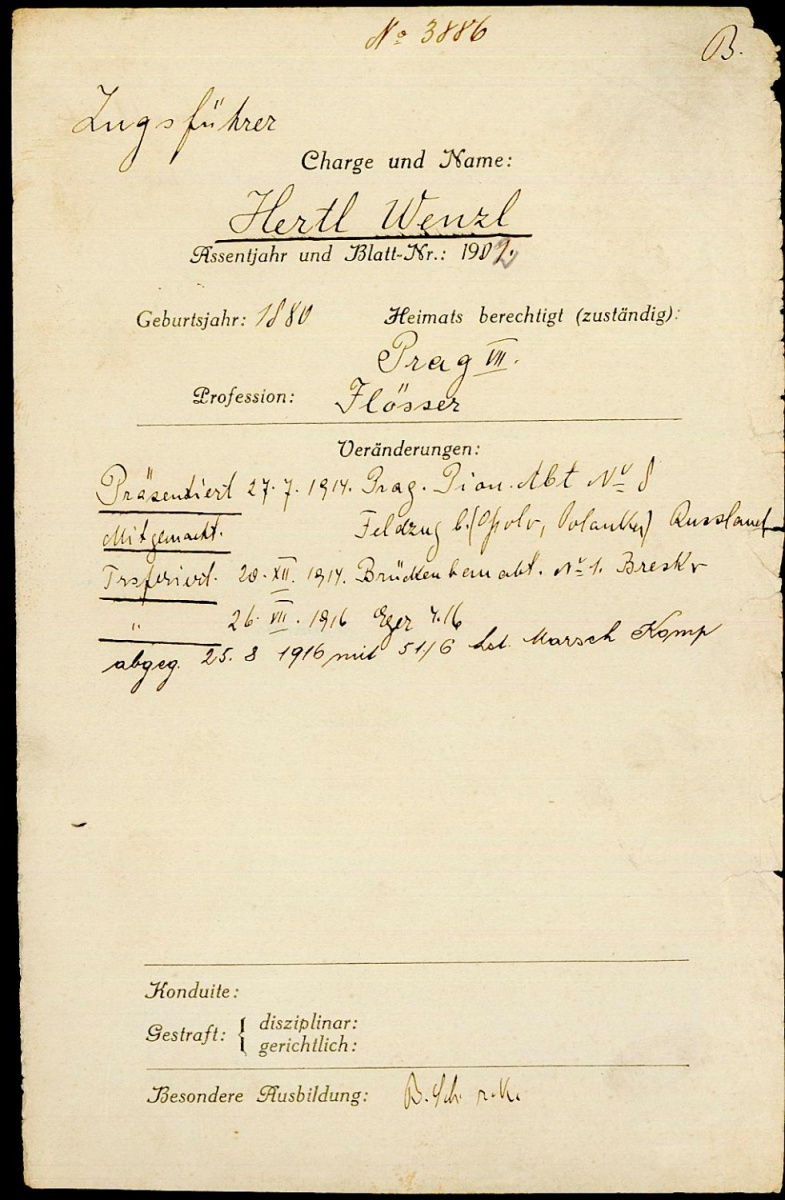 No 3886
B.
Zugsführer
Charge und Name:
Hertl Wenzl
Assentjahr und Blatt-Nr.: 1902.
Geburtsjahr: 1880 Heimats berechtigt (zuständig):
Prag VII.
Profession: Flösser
Veränderungen:
Präsentiert 27.7.1914. Prag. Pion. Abt No 8
Mitgemacht. Feldzug b. Russland
28.XII.1914. Brückenbauabt. No 1.
" 26.VII.1916 Eger 4.16
abgeg. 25.8 1916 mit 51/6 Lst. Marsch Komp
Konduite:
Gestraft: { disziplinar:
gerichtlich:
Besondere Ausbildung: B. Sch.